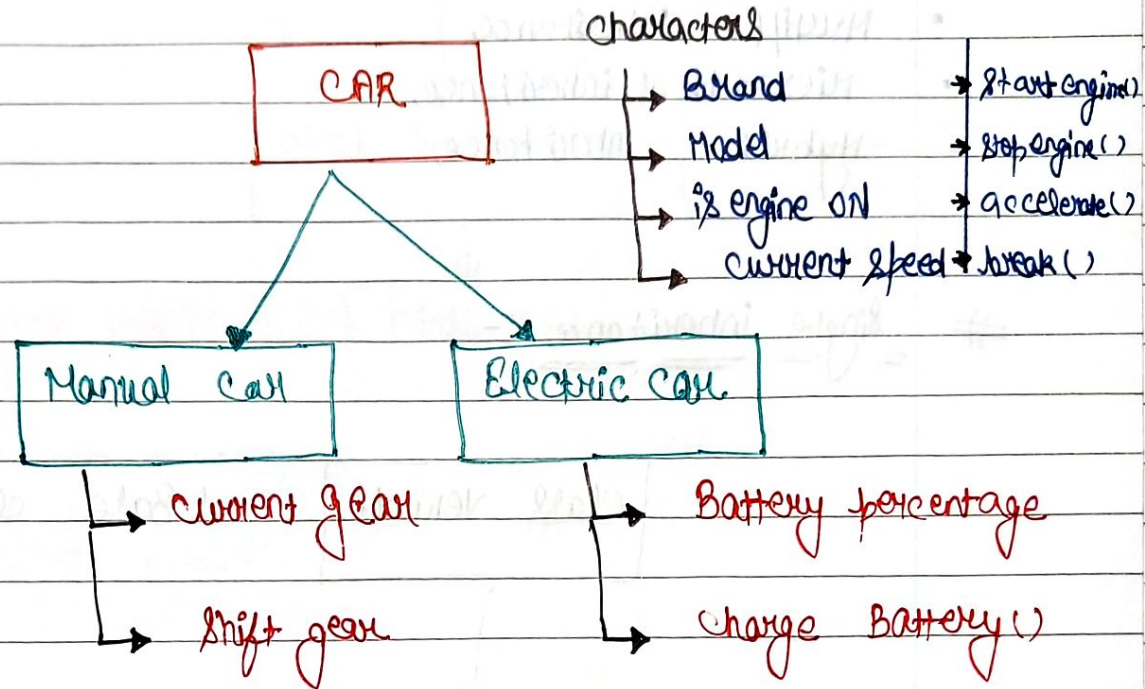 Characters
CAR
Brand
Model
is engine ON
Current Speed
Start engine()
Stop engine()
accelerate()
break()
Manual Car
Electric Car
Current gear
Shift gear
Battery percentage
Charge Battery()